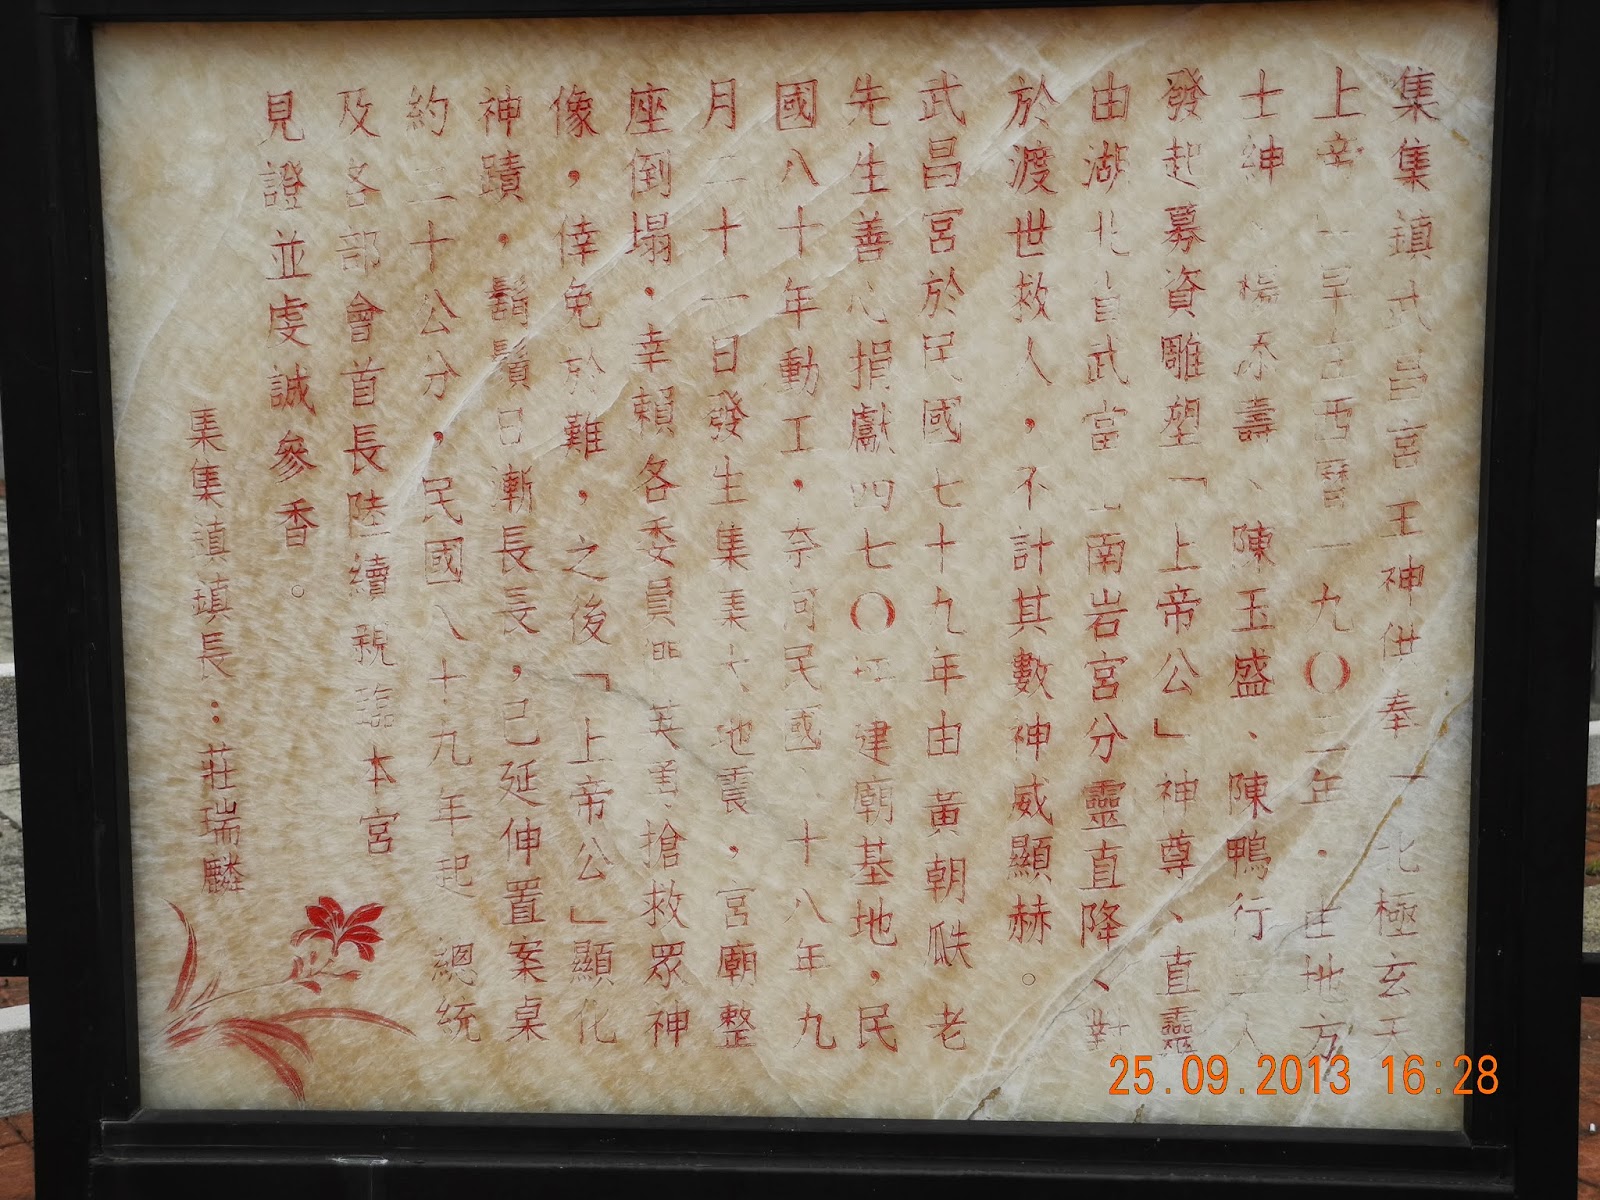 集集鎮武昌宮主神供奉「北極玄天
上帝」早在西曆一九〇二年,由地方
士紳、楊添壽、陳玉盛、陳鴨行三人
發起募資雕塑「上帝公」神尊、直靈
由湖北省武當山南岩宮分靈直降、對
於渡世救人,不計其數神威顯赫。
武昌宮於民國七十九年由黃朝瓞老
先生善心捐獻四七〇坪建廟基地,民
國八十年動工,奈何民國八十八年九
月二十一日發生集集大地震,宮廟整
座倒塌,幸賴各委員 英勇搶救眾神
像,倖免於難,之後「上帝公」顯化
神蹟,鬍鬚日漸長長,已延伸置案桌
約三十公分,民國八十九年起 總統
及各部會首長陸續親臨本宮
見證並虔誠參香。
集集鎮鎮長:莊瑞麟
25.09.2013 16:28